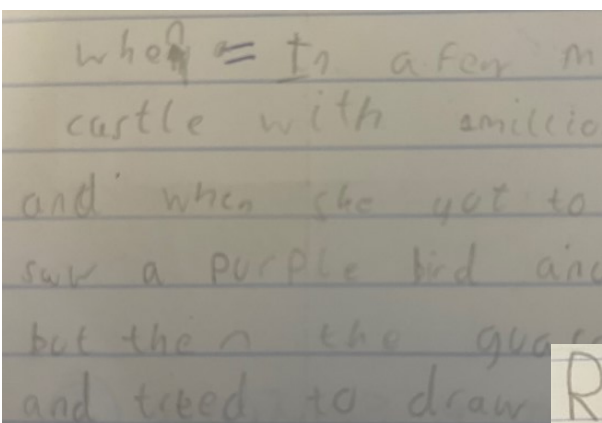 when = In a few m
castle with amillio
and when she got to
saw a purple bird and
but then the guar
and treed to draw R